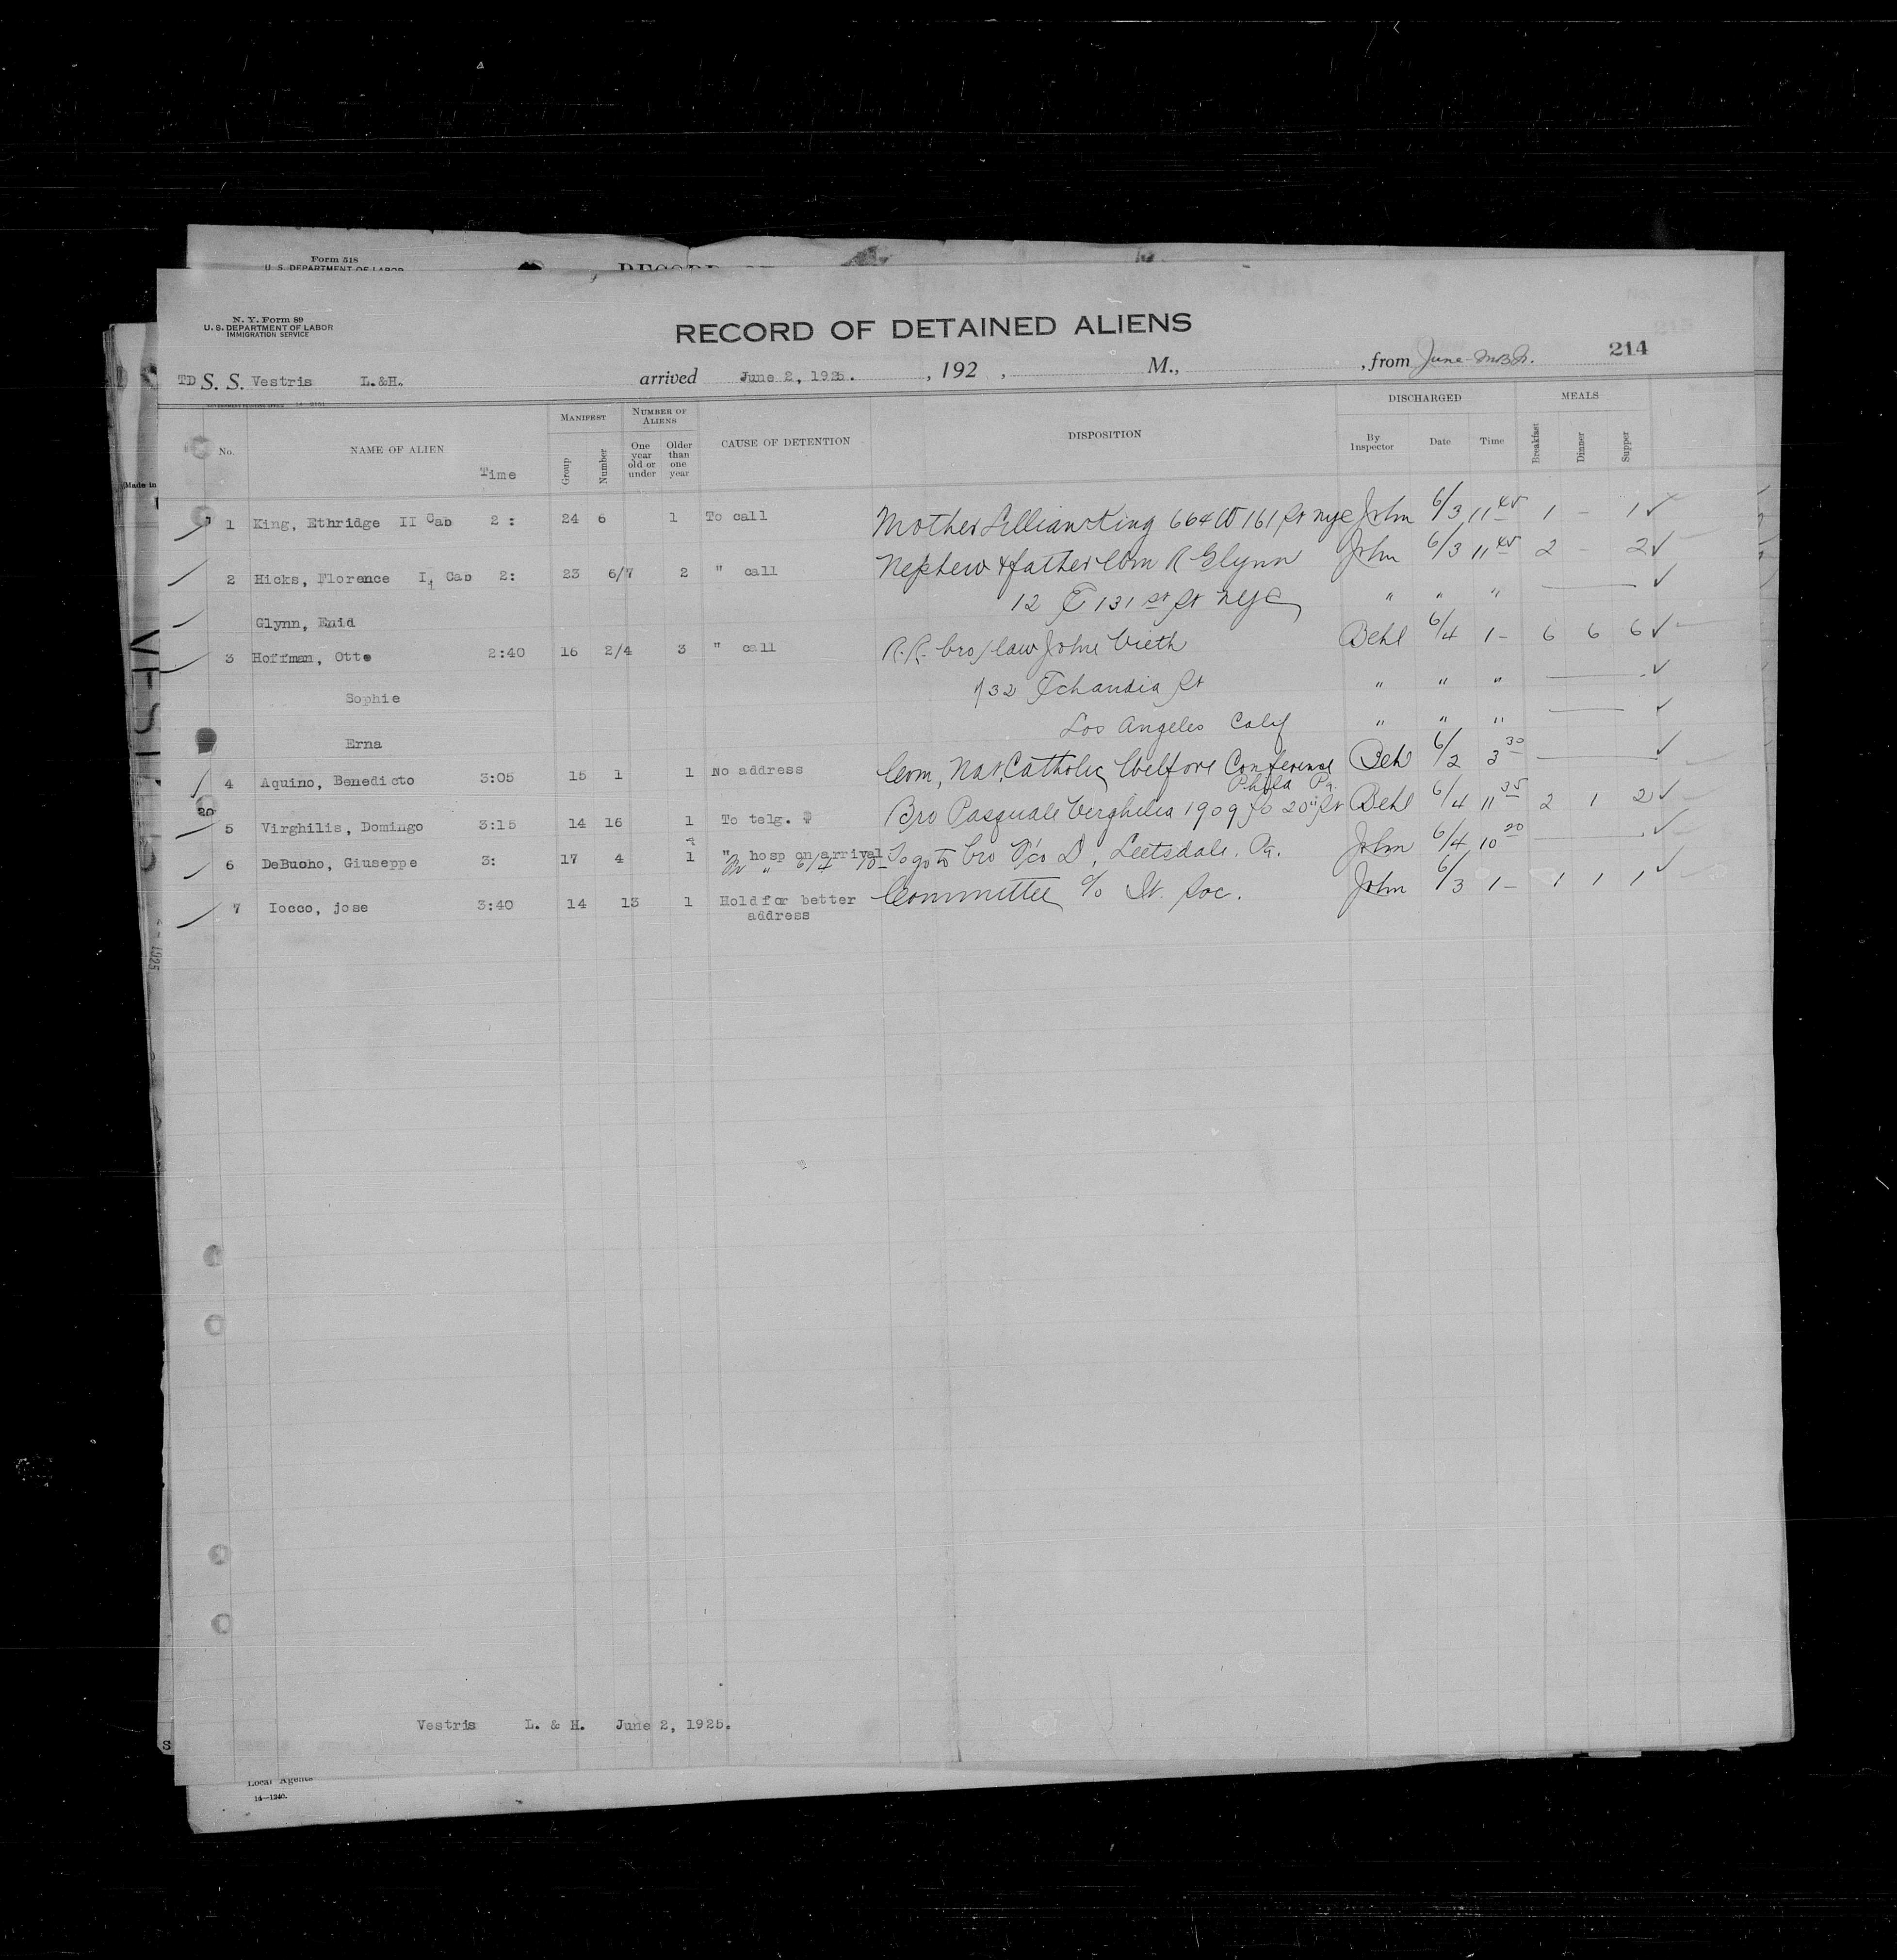 Form 518
U. S. DEPARTMENT OF LABOR
N. Y. Form 89
U. S. DEPARTMENT OF LABOR
IMMIGRATION SERVICE
RECORD OF DETAINED ALIENS
214
TD S. S. Vestris L.&H. arrived June 2, 1925. , 192 , M., , from June
No. NAME OF ALIEN Time MANIFEST Group Number NUMBER OF ALIENS One year old or under Older than one year CAUSE OF DETENTION DISPOSITION DISCHARGED By Inspector Date Time MEALS Breakfast Dinner Supper
1 King, Ethridge II Cab 2: 24 6 1 To call Mother Lillian King 664 W 161 St nyc John 6/3 11 45 1 - 1 ✓
2 Hicks, Florence I Cab 2: 23 6/7 2 " call Nephew & father Wm R Glynn John 6/3 11 45 2 - 2 ✓
12 E 131 st St nyc " " " ✓
Glynn, Enid
3 Hoffman, Otto 2:40 16 2/4 3 " call R.R. bro/law John Vieth Behl 6/4 1- 6 6 6 ✓
Sophie St " " " ✓
Los Angeles Calif " " " ✓
Erna
4 Aquino, Benedicto 3:05 15 1 1 No address Com, Nat. Catholic Welfore Conference Behl 6/2 3 30 ✓
Phila Pa.
5 Virghilis, Domingo 3:15 14 16 1 To telg. Bro Pasquale Verghilia 1909 So 20" St Behl 6/4 11 35 2 1 2 ✓
6 DeBuoho, Giuseppe 3: 17 4 1 " hosp on arrival To go to bro D, Leetsdale, Pa. John 6/4 10 20 ✓
7 Iocco, jose 3:40 14 13 1 Hold for better address Committee c/o It. Soc. John 6/3 1- 1 1 1 ✓
Vestris L. & H. June 2, 1925.
Local Agents
14—1240.